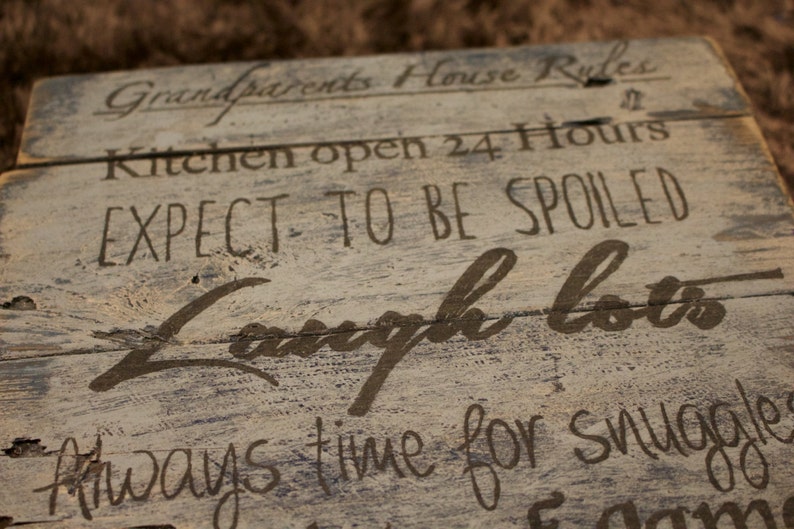 Grandparents House Rules
Kitchen open 24 Hours
EXPECT TO BE SPOILED
Laugh lots
Always time for snuggles
& game